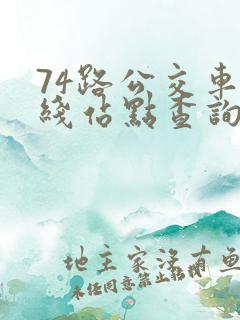 74路公交車
綫佔點查詢
地主家沒有魚
未经同意禁止转载